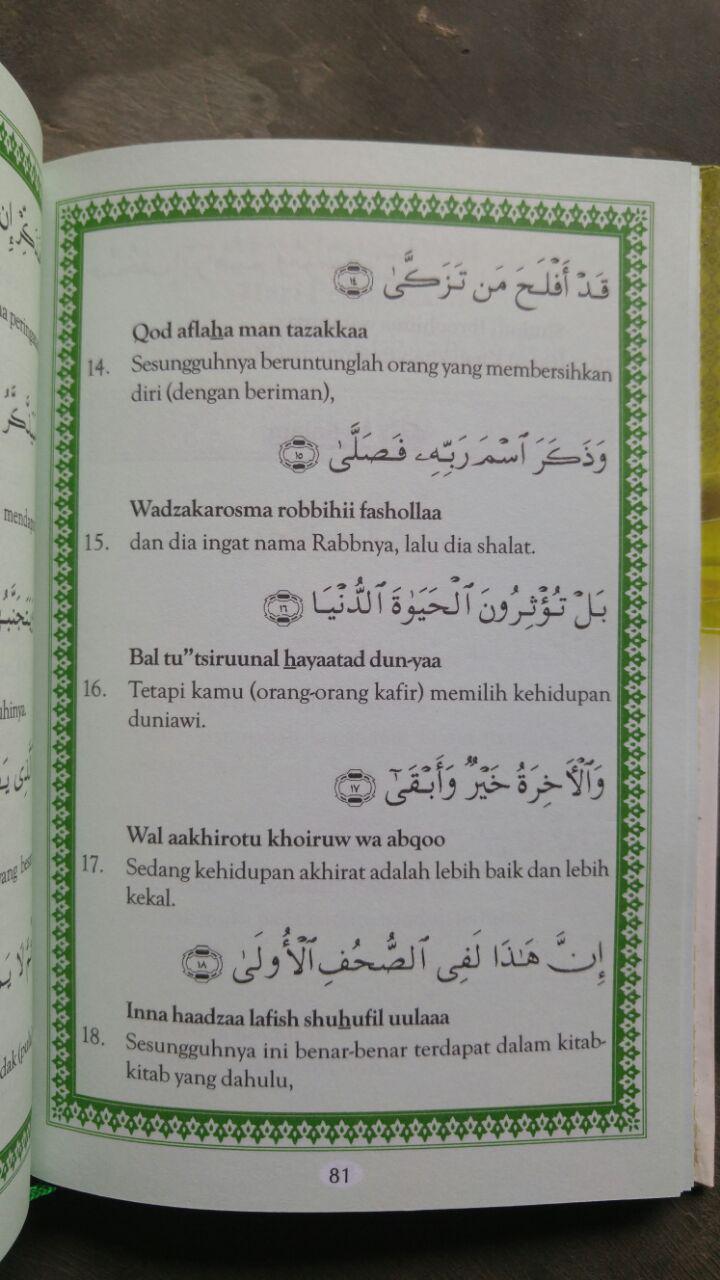 قَدْ أَفْلَحَ مَن تَزَكَّىٰ ١٤
Qod aflaha man tazakkaa
14. Sesungguhnya beruntunglah orang yang membersihkan
diri (dengan beriman),
وَذَكَرَ ٱسْمَ رَبِّهِۦ فَصَلَّىٰ ١٥
Wadzakarosma robbihii fashollaa
15. dan dia ingat nama Rabbnya, lalu dia shalat.
بَلْ تُؤْثِرُونَ ٱلْحَيَوٰةَ ٱلدُّنْيَا ١٦
Bal tu”tsiruunal hayaatad dun-yaa
16. Tetapi kamu (orang-orang kafir) memilih kehidupan
duniawi.
وَٱلْـَٔاخِرَةُ خَيْرٌ وَأَبْقَىٰٓ ١٧
Wal aakhirotu khoiruw wa abqoo
17. Sedang kehidupan akhirat adalah lebih baik dan lebih
kekal.
إِنَّ هَـٰذَا لَفِى ٱلصُّحُفِ ٱلْأُولَىٰ ١٨
Inna haadzaa lafish shuhufil uulaaa
18. Sesungguhnya ini benar-benar terdapat dalam kitab-
kitab yang dahulu,
81